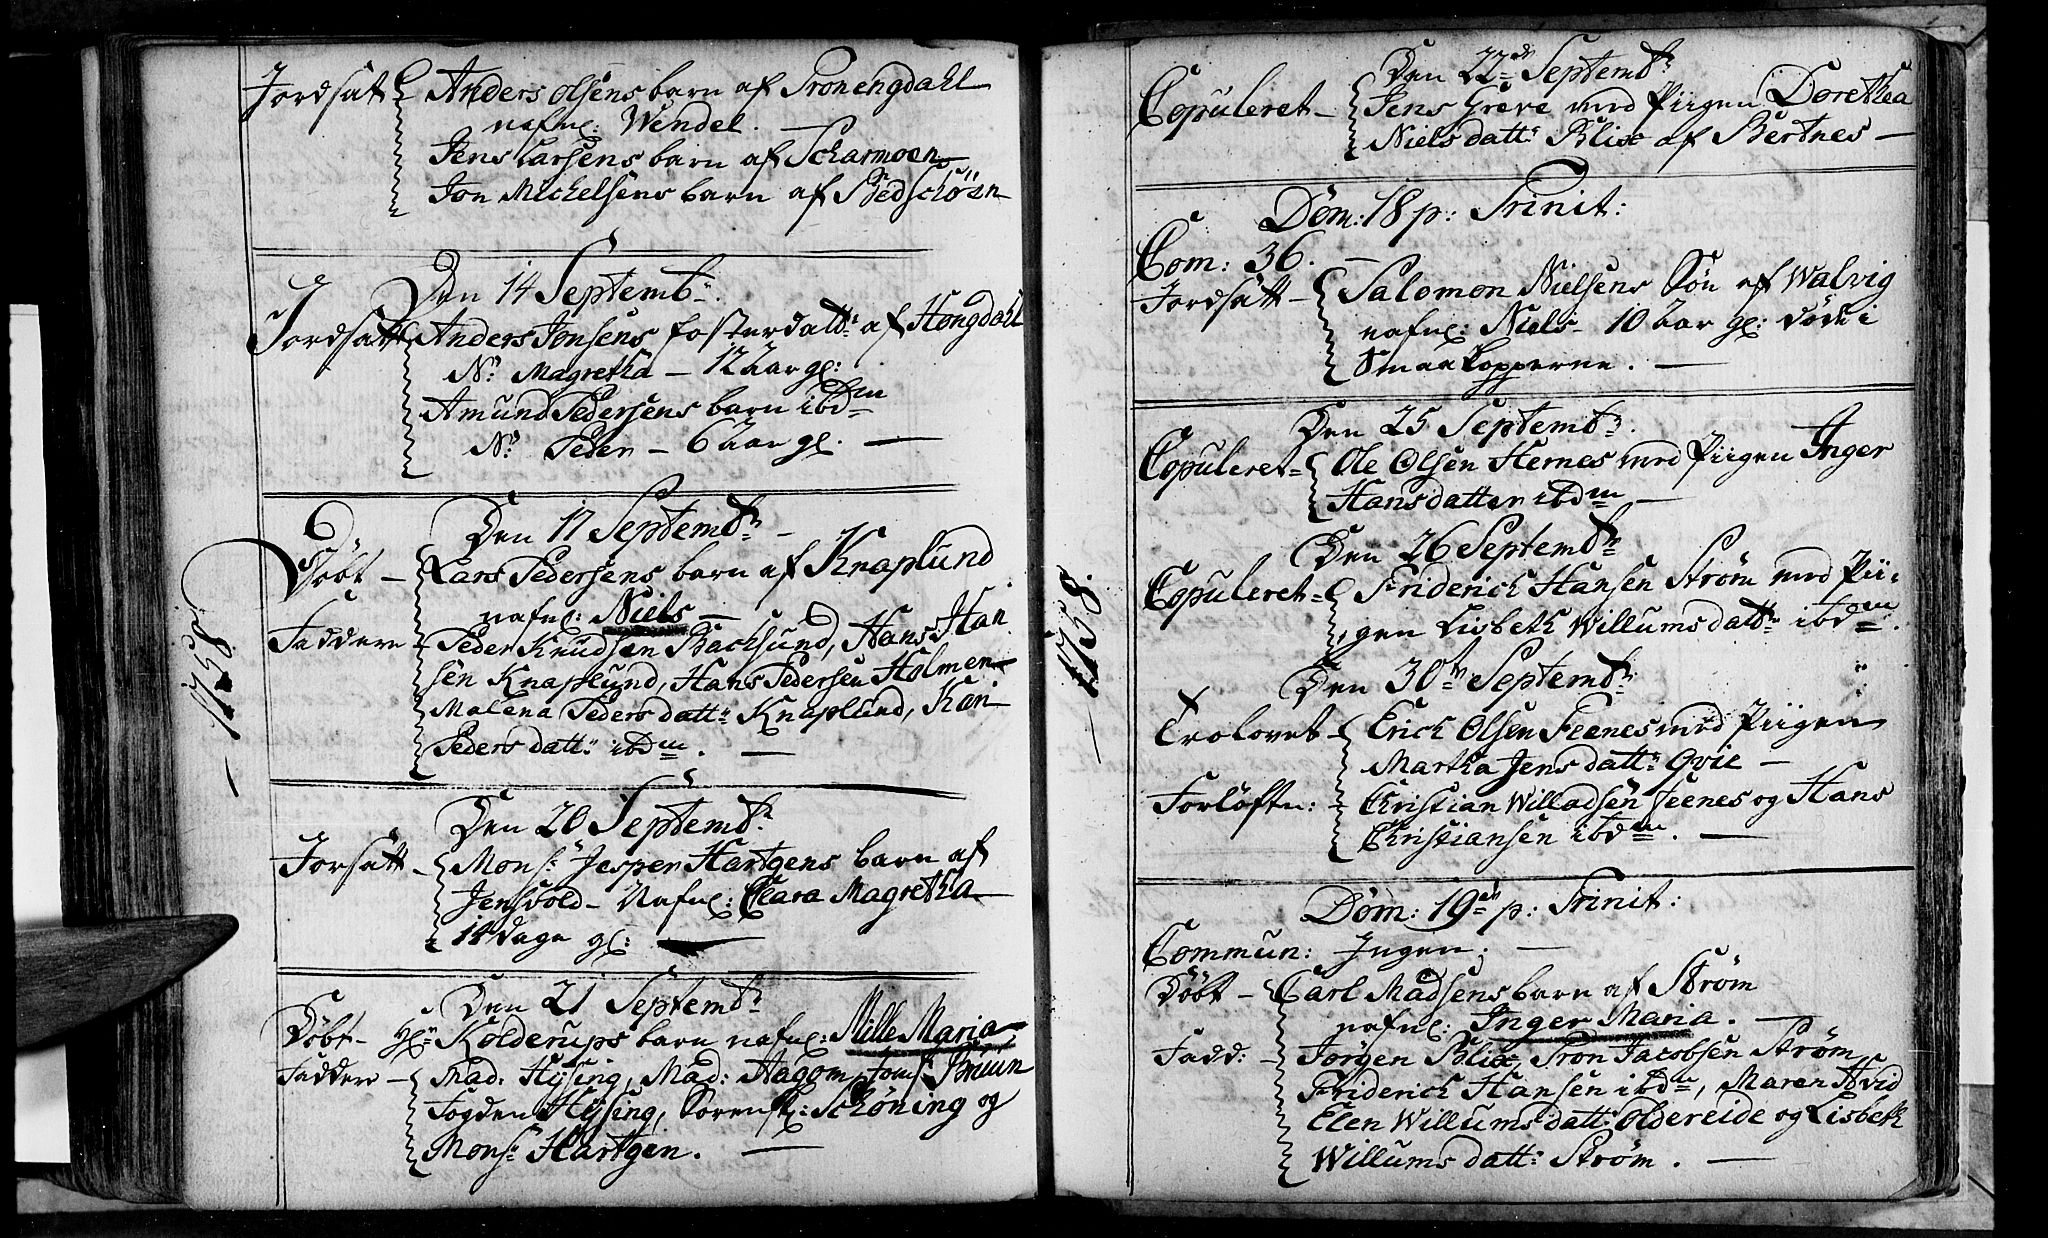 Jordsatt Anders Olsens barn af Tronengdahl
nafnl: Wendel.
Jens Larsens barn af Scharmoen
Jon Michelsens barn af Bedschøen
Den 14 Septembr:
Jordsatt Anders Jonsens fosterdattr: af Hongdahl
N: Magretha – 12 Aar gl:
Amund Pedersens barn ibdm
N: Peder – 6 Aar gl. –
1758
Den 17 Septembr –
Döbt – Lars Pedersens barn af Knaplund
nafnl: Niels –
Faddere – Peder Knudsen Bachsund, Hans Han
sen Knaplund, Hans Pedersen Holmen
Malena Pedersdattr: Knaplund, Kari
Pedersdattr: ibdm. –
Den 20 Septembr
Jorsatt – Monsr Jesper Hartgens barn af
Jensvold – Nafnl: Clara Magretha
14 dage gl: –
Den 21 Septembr
Döbt – Hrn Kolderups barn nafnl: Mille Maria
Faddere – Mad: Hysing, Mad: Hagom, Jomf Bruun
Fogden Hysing, Sorenskr: Schöning og
Monsr Hartgen. –
1758.
Den 22de Septembr
Copuleret – Jens Greve med Piigen Dorethea
Nielsdattr: Blix af Bertnes –
Dom: 18 p: Trinit:
Com: 36. –
Jordsatt – Salomon Nielsens Sön af Walvig
nafnl: Niels – 10 Aar gl: döde i
Smaakopperne. –
Den 25 Septembr.
Copuleret – Ole Olsen Hernes med Piigen Inger
Hansdatter ibdm –
Den 26 Septembr
Copuleret – Friderich Hansen Strøm med Pii-
gen Lisbeth Willumsdattr ibdm.
Den 30te Septembr
Trolovet – Erich Olsen Feenes med Piigen
Martha Jensdattr: Qvie –
Forlöftn: – Christian Willadsen Feenes og Hans
Christiansen ibdm. –
Dom: 19de p: Trinit:
Commun: Ingen; –
Döbt – Carl Madsens barn af Strøm
nafnl: Inger Maria. –
Fadd: – Jørgen Blix, Tron Jacobsen Strøm
Friderich Hansen ibdm, Maren Hvid
Elen Willumsdattr: Oldereide og Lisbeth
Willumsdattr: Strøm. –